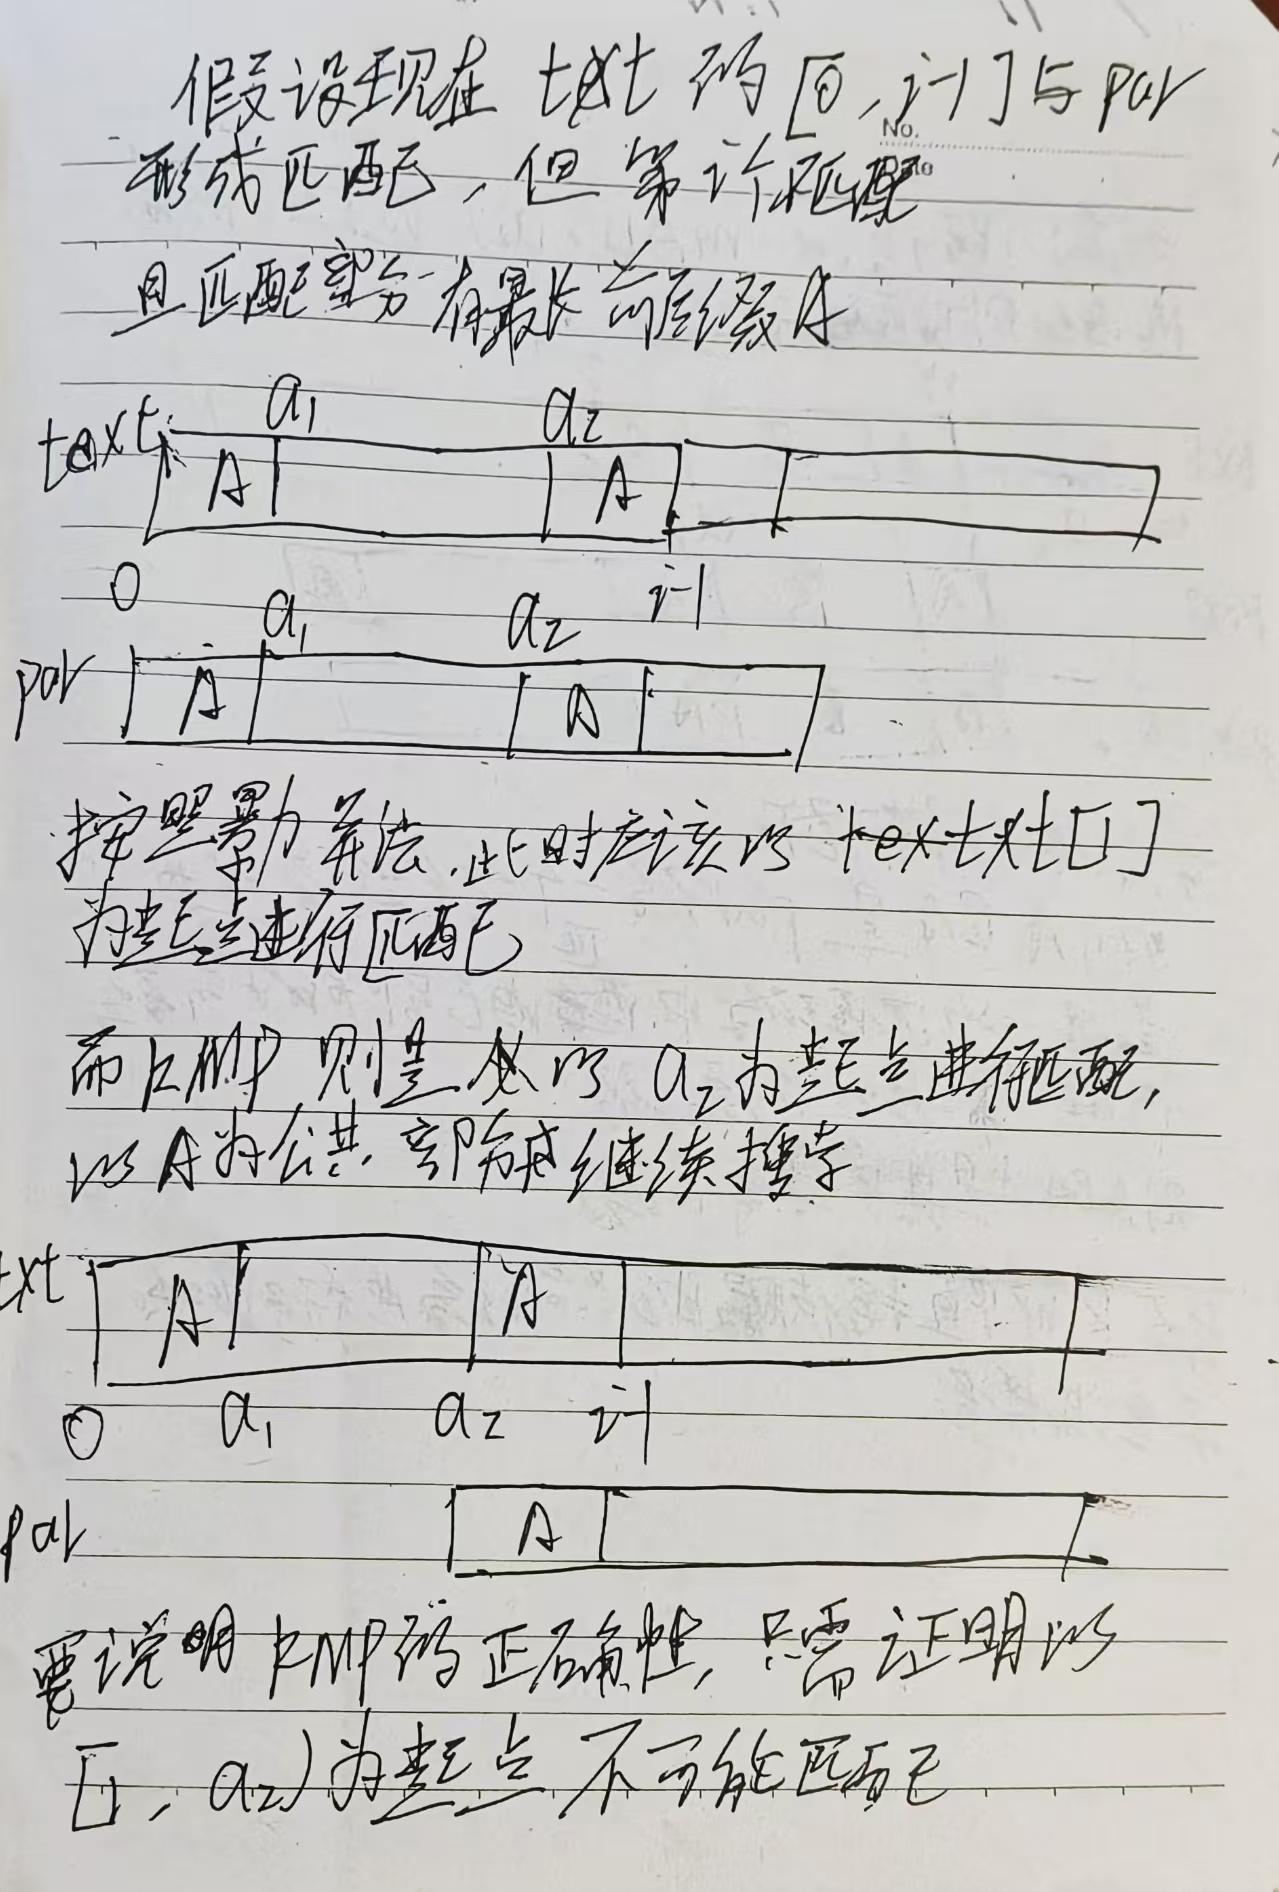 假设现在 txt 的 [0, i-1] 与 par
No.
Date
形成匹配，但第i个不匹配
且匹配部分有最长前后缀A
a1 a2
text
A A
0 i-1
a1 a2
par A A
按照暴力算法,此时应该以 txt[1]
为起点进行匹配
而KMP则是以 a2为起点进行匹配,
以A为公共部分继续搜寻
txt A A
0 a1 a2 i-1
par A
要说明KMP的正确性,只需证明以
[1, a2)为起点不可能匹配